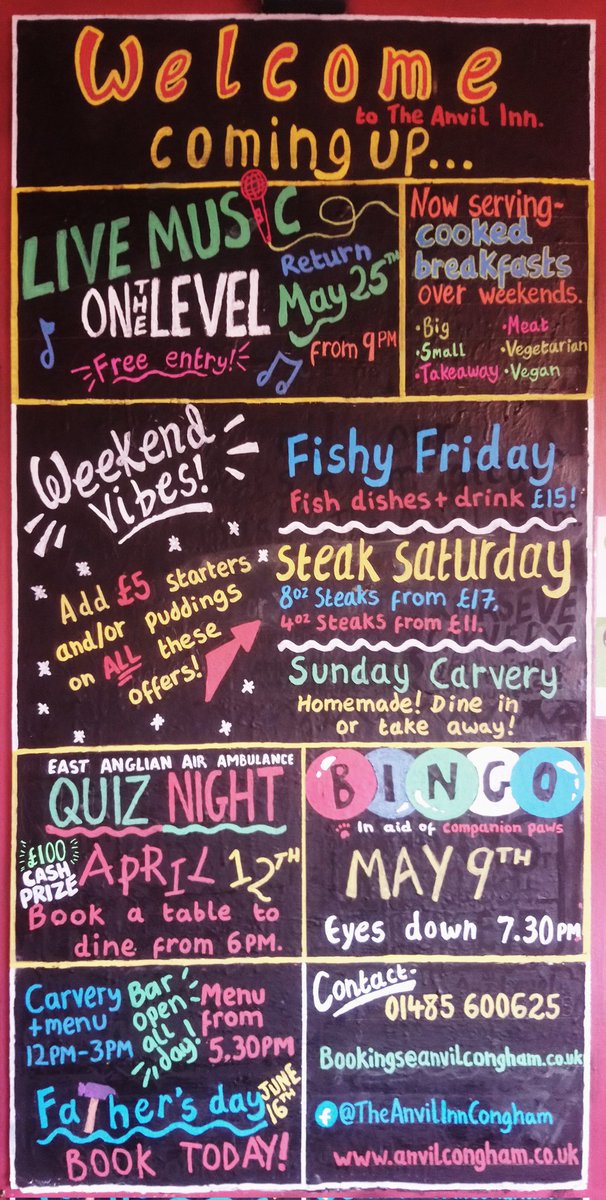 Welcome
to The Anvil Inn.
coming up...
LIVE MUSIC
ON THE LEVEL
Return
May 25TH
from 9PM
Free entry!
Now serving-
cooked
breakfasts
over weekends.
·Big ·Meat
·Small ·Vegetarian
·Takeaway ·Vegan
Weekend
Vibes!
Add £5 starters
and/or puddings
on ALL these
offers!
Fishy Friday
Fish dishes + drink £15!
Steak Saturday
8oz Steaks from £17,
4oz Steaks from £11.
Sunday Carvery
Homemade! Dine in
or take away!
EAST ANGLIAN AIR AMBULANCE
QUIZ NIGHT
£100
CASH
PRIZE
APRIL 12TH
Book a table to
dine from 6PM.
BINGO
In aid of companion paws
MAY 9TH
Eyes down 7.30PM
Carvery
+menu
12PM-3PM
Bar
open
all
day!
Menu
from
5.30PM
Father's day
JUNE
16TH
BOOK TODAY!
Contact-
01485 600625
Bookings@anvilcongham.co.uk
@TheAnvilInnCongham
www.anvilcongham.co.uk